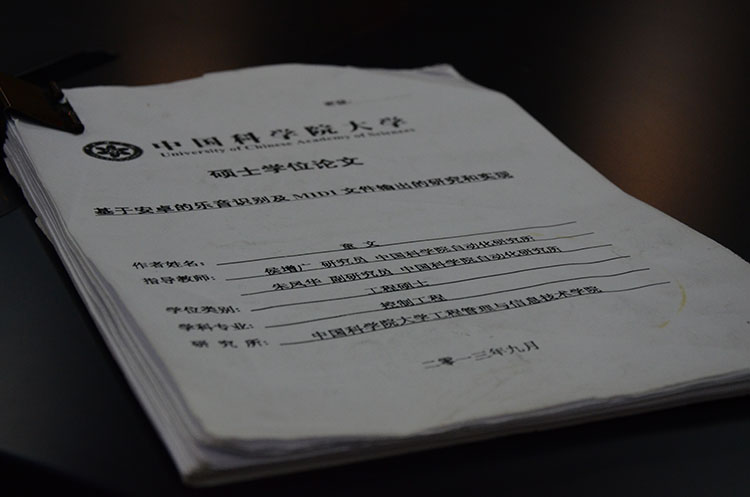 中国科学院大学
University of Chinese Academy of Sciences
硕士学位论文
基于安卓的乐音识别及 MIDI 文件输出的研究和实现
作者姓名: 童文
指导教师: 侯增广 研究员 中国科学院自动化研究所
朱凤华 副研究员 中国科学院自动化研究所
学位类别: 工程硕士
学科专业: 控制工程
研 究 所: 中国科学院大学工程管理与信息技术学院
二零一三年九月